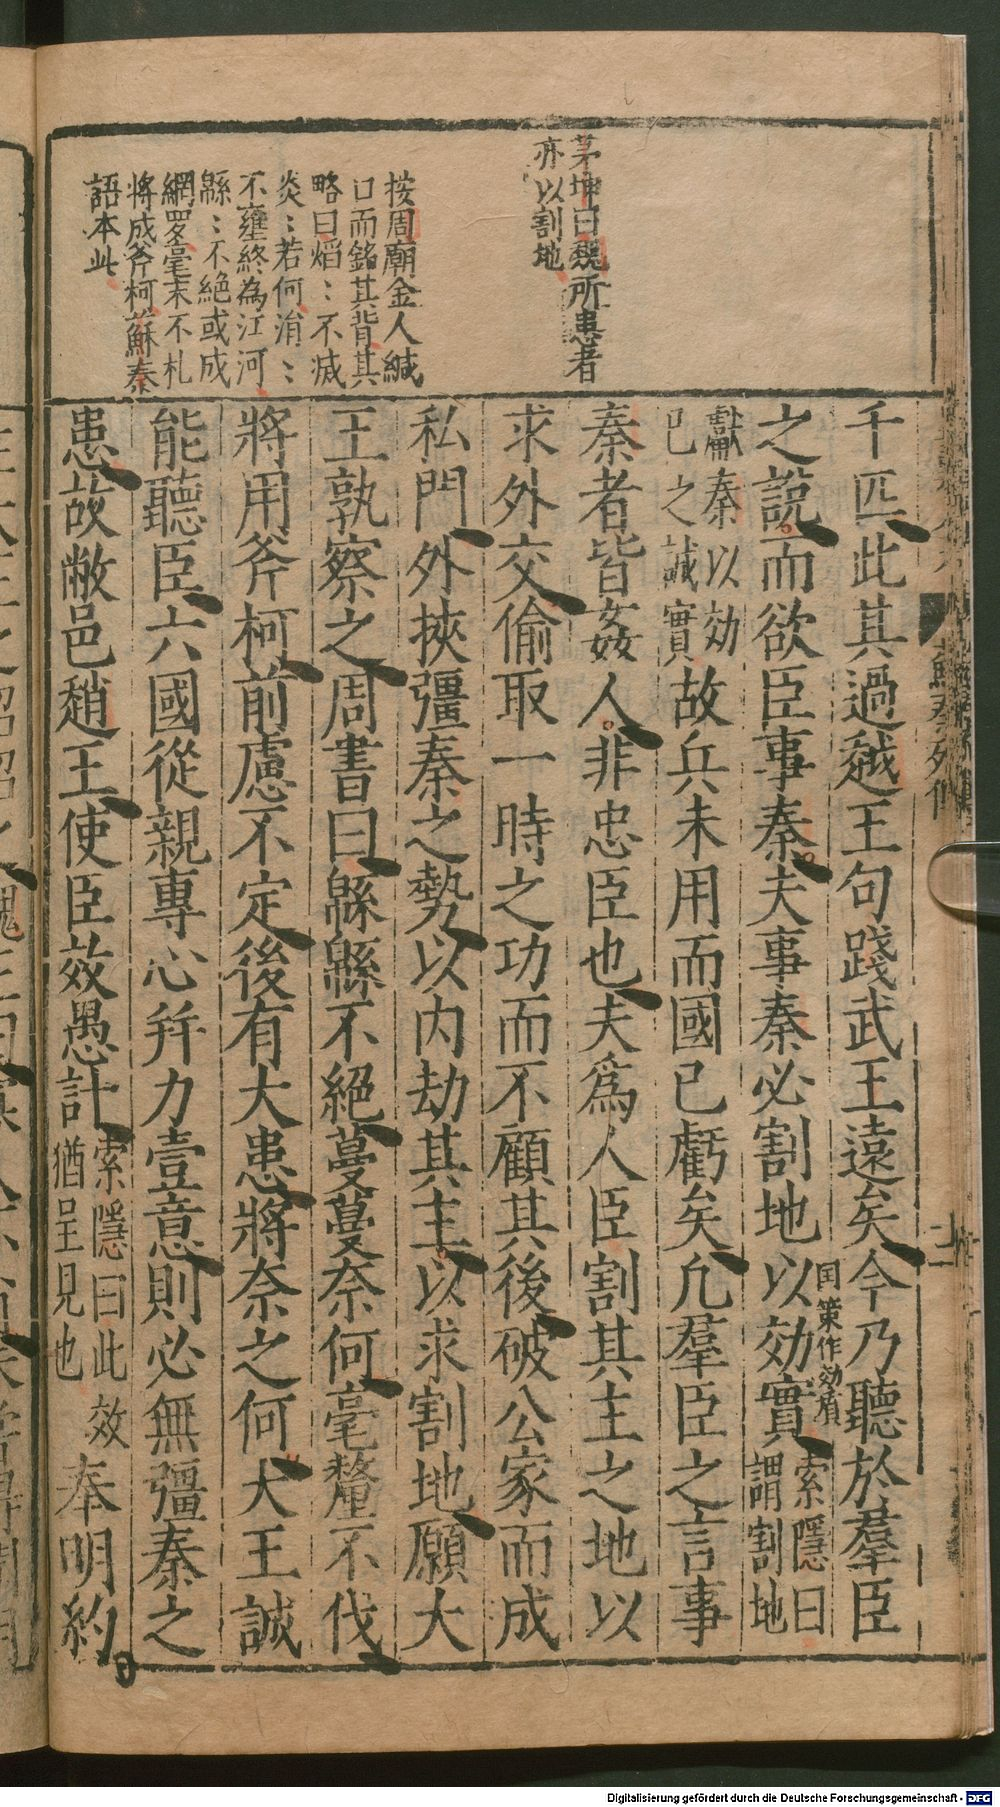 茅坤曰魏所患者
亦以割地
按周廟金人緘
口而銘其背其
略曰焰〻不滅
炎〻若何涓〻
不壅終為江河
緜〻不絕或成
網羅毫末不札
將成斧柯蘇秦
語本此
千匹此其過越王句踐武王遠矣今乃聽於羣臣
之說而欲臣事秦夫事秦必割地以効實
国策作効質
索隱曰
謂割地
獻秦以効
已之誠實
故兵未用而國已虧矣凢羣臣之言事
秦者皆姦人非忠臣也夫爲人臣割其主之地以
求外交偷取一時之功而不顧其後破公家而成
私門外挾彊秦之勢以內劫其主以求割地願大
王孰察之周書曰緜緜不絕蔓蔓奈何毫釐不伐
將用斧柯前慮不定後有大患將奈之何大王誠
能聽臣六國從親專心并力壹意則必無彊秦之
患故敝邑趙王使臣效愚計
索隱曰此效
猶呈見也
奉明約
蘇秦列傳
Digitalisierung gefördert durch die Deutsche Forschungsgemeinschaft - DFG